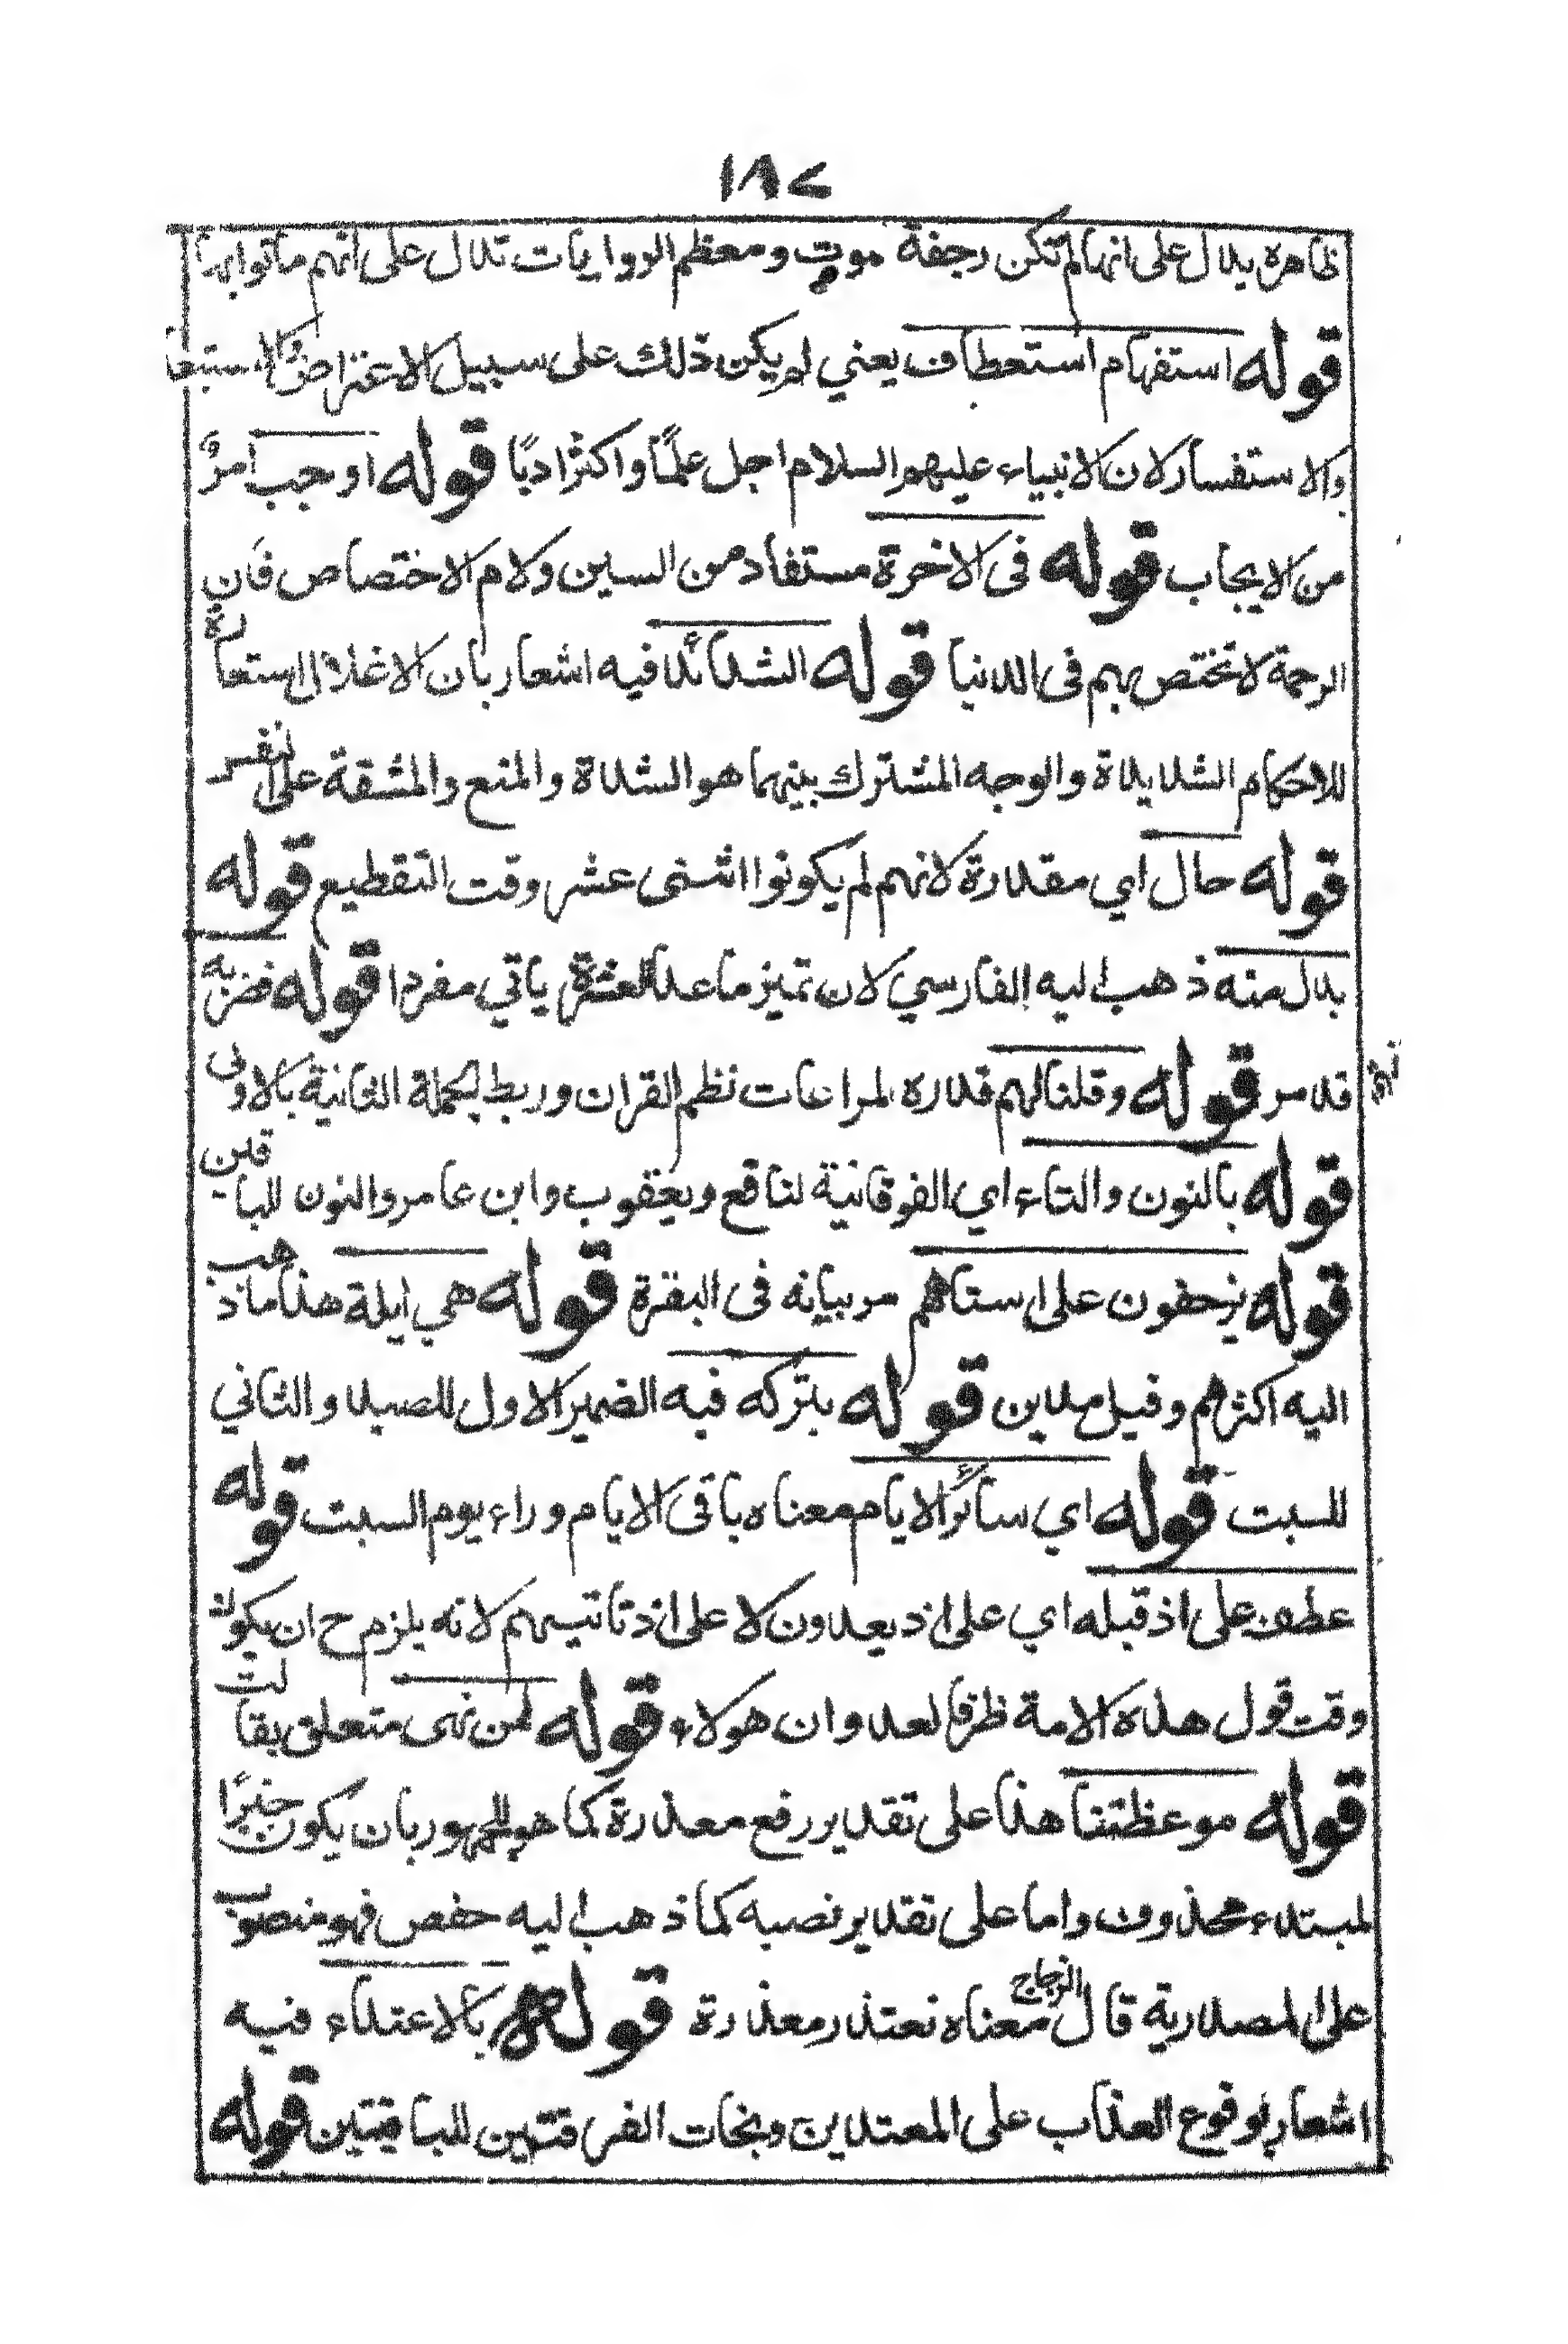 ١٨٢
ظاهره يدل على انها لم تكن رجفة موت ومعظم الروايات تدل على انهم ماتوا بها
قوله استفهام استعطاف يعني لم يكن ذلك على سبيل الاعتراض والاستبعاد
والاستفسار لان الانبياء عليهم السلام اجل علمًا واكثر ادبًا قوله اوجب امرٌ
من الايجاب قوله في الاخرة مستفاد من السين ولام الاختصاص فان
الرحمة لا تختص بهم في الدنيا قوله الشدائد فيه اشعار بان الاغلال استعارة
للاحكام الشديدة والوجه المشترك بينهما هو الشدة والمنع والمشقة على النفس
قوله حال اي مقدرة لانهم لم يكونوا اثنى عشر وقت التقطيع قوله
بدل منه ذهب اليه الفارسي لان تميز ما عدا العشرة ياتي مفردا قوله فضربه
قد مر قوله وقلنا لهم قدره لمراعات نظم القران وربط الجملة الثانية بالاولى
قوله بالنون والتاء اي الفوقانية لنافع ويعقوب وابن عامر والنون للباقين
قوله يزحفون على استاههم مر بيانه في البقرة قوله هي ايلة هذا ما ذهب
اليه اكثرهم وقيل مدين قوله بتركه فيه الضمير الاول للصيد والثاني
للسبت قوله اي سائر الايام معناه باقى الايام وراء يوم السبت قوله
عطف على اذ قبله اي على اذ يعدون لا على اذ تاتيهم لانه يلزم ح ان يكون
وقت قول هذه الامة ظرفا لعدوان هولاء قوله لمن نهى متعلق بقالت
قوله موعظتنا هذا على تقدير رفع معذرة كما هو للجمهور بان يكون خبرًا
لمبتدء محذوف واما على تقدير نصبه كما ذهب اليه حفص فهو منصوب
على المصدرية قال الزجاج معناه نعتذر معذرة قوله بالاعتداء فيه
اشعار بوقوع العذاب على المعتدين ونجات الفرقتين للباقيتين قوله